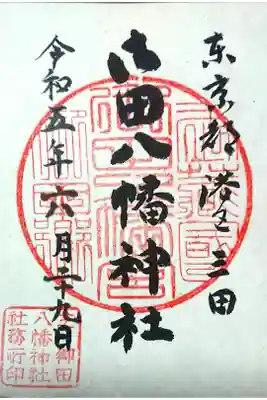 東京都港区三田
御田八幡神社
令和五年六月二十九日
御田
八幡神社
社務所印